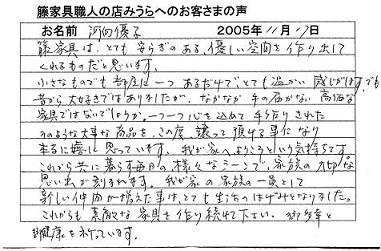 籐家具職人の店みうらへのお客さまの声
お名前 河西優子 2005年11月17日
籐家具は、とても安らぎのある、優しい空間を作り出して
くれるものだと思います。
小さなものでも部屋に一つあるだけで、とても温かい感じがします。でも
昔から大好きではありましたが、なかなか手の届かない高価な
家具ではないでしょうか。一つ一つ心を込めて手作りされた
そのような大事な商品を、この度、譲って頂ける事になり
本当に嬉しく思っています。我が家へようこそという気持ちです
これから共に暮らす毎日の様々なシーンで、家族の大切な
思い出が刻まれます。我が家の家族の一員として
新しい仲間が増えた事は、とても生活のはげみとなりました。
これからも素敵な家具を作り続けて下さい。
御健康を祈っています。